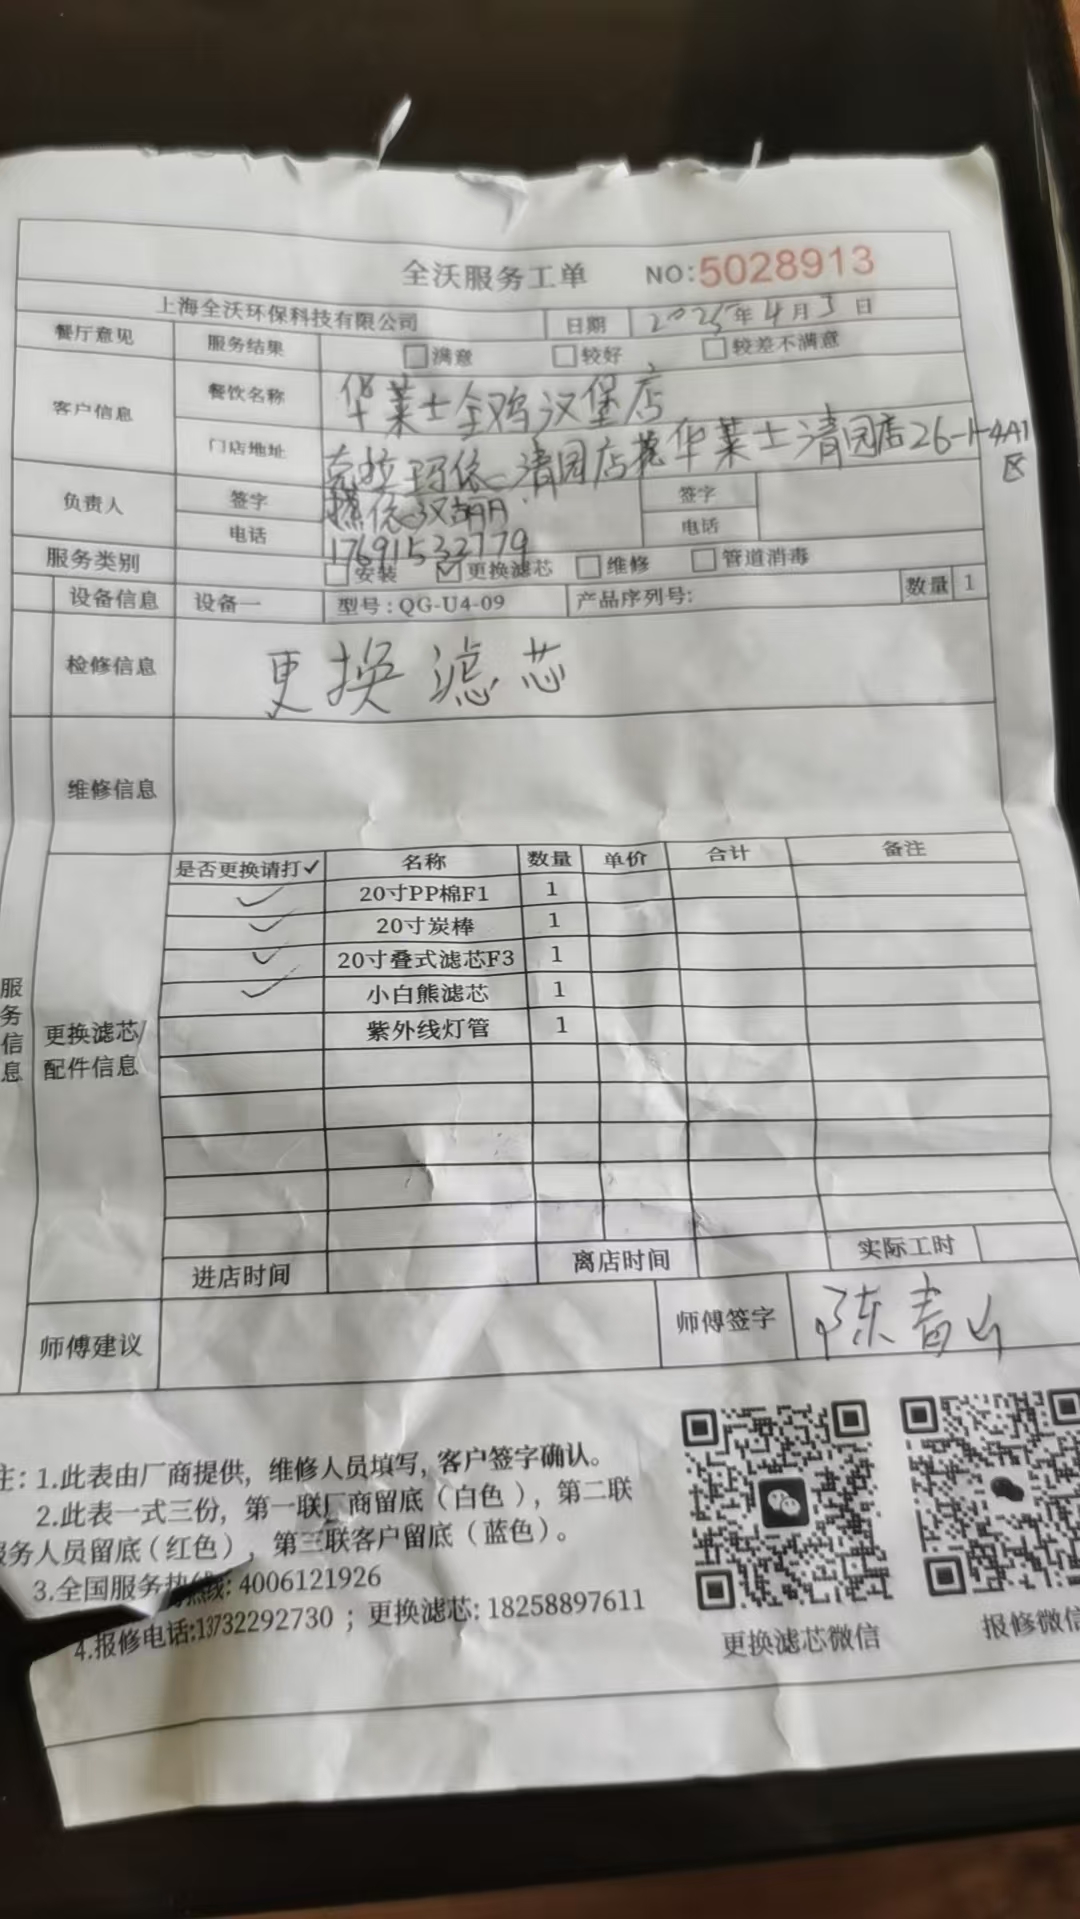 全沃服务工单 NO:5028913
上海全沃环保科技有限公司 日期 2025年4月3日
餐厅意见 服务结果 满意 较好 较差不满意
客户信息 餐饮名称 华莱士全鸡汉堡店
门店地址 克拉玛依-清园店 华莱士清园店26-1-4A1区
负责人 签字 签字
电话 17691532779 电话
服务类别 安装 ✓更换滤芯 维修 管道消毒
设备信息 设备一 型号：QG-U4-09 产品序列号： 数量 1
检修信息 更换滤芯
维修信息
服务信息
更换滤芯/配件信息
是否更换请打✓ 名称 数量 单价 合计 备注
✓ 20寸PP棉F1 1
✓ 20寸炭棒 1
✓ 20寸叠式滤芯F3 1
✓ 小白熊滤芯 1
紫外线灯管 1
进店时间 离店时间 实际工时
师傅建议 师傅签字 陈青山
注：1.此表由厂商提供，维修人员填写，客户签字确认。
2.此表一式三份，第一联厂商留底（白色），第二联
服务人员留底（红色），第三联客户留底（蓝色）。
3.全国服务热线：4006121926
4.报修电话:13732292730；更换滤芯：18258897611
更换滤芯微信 报修微信